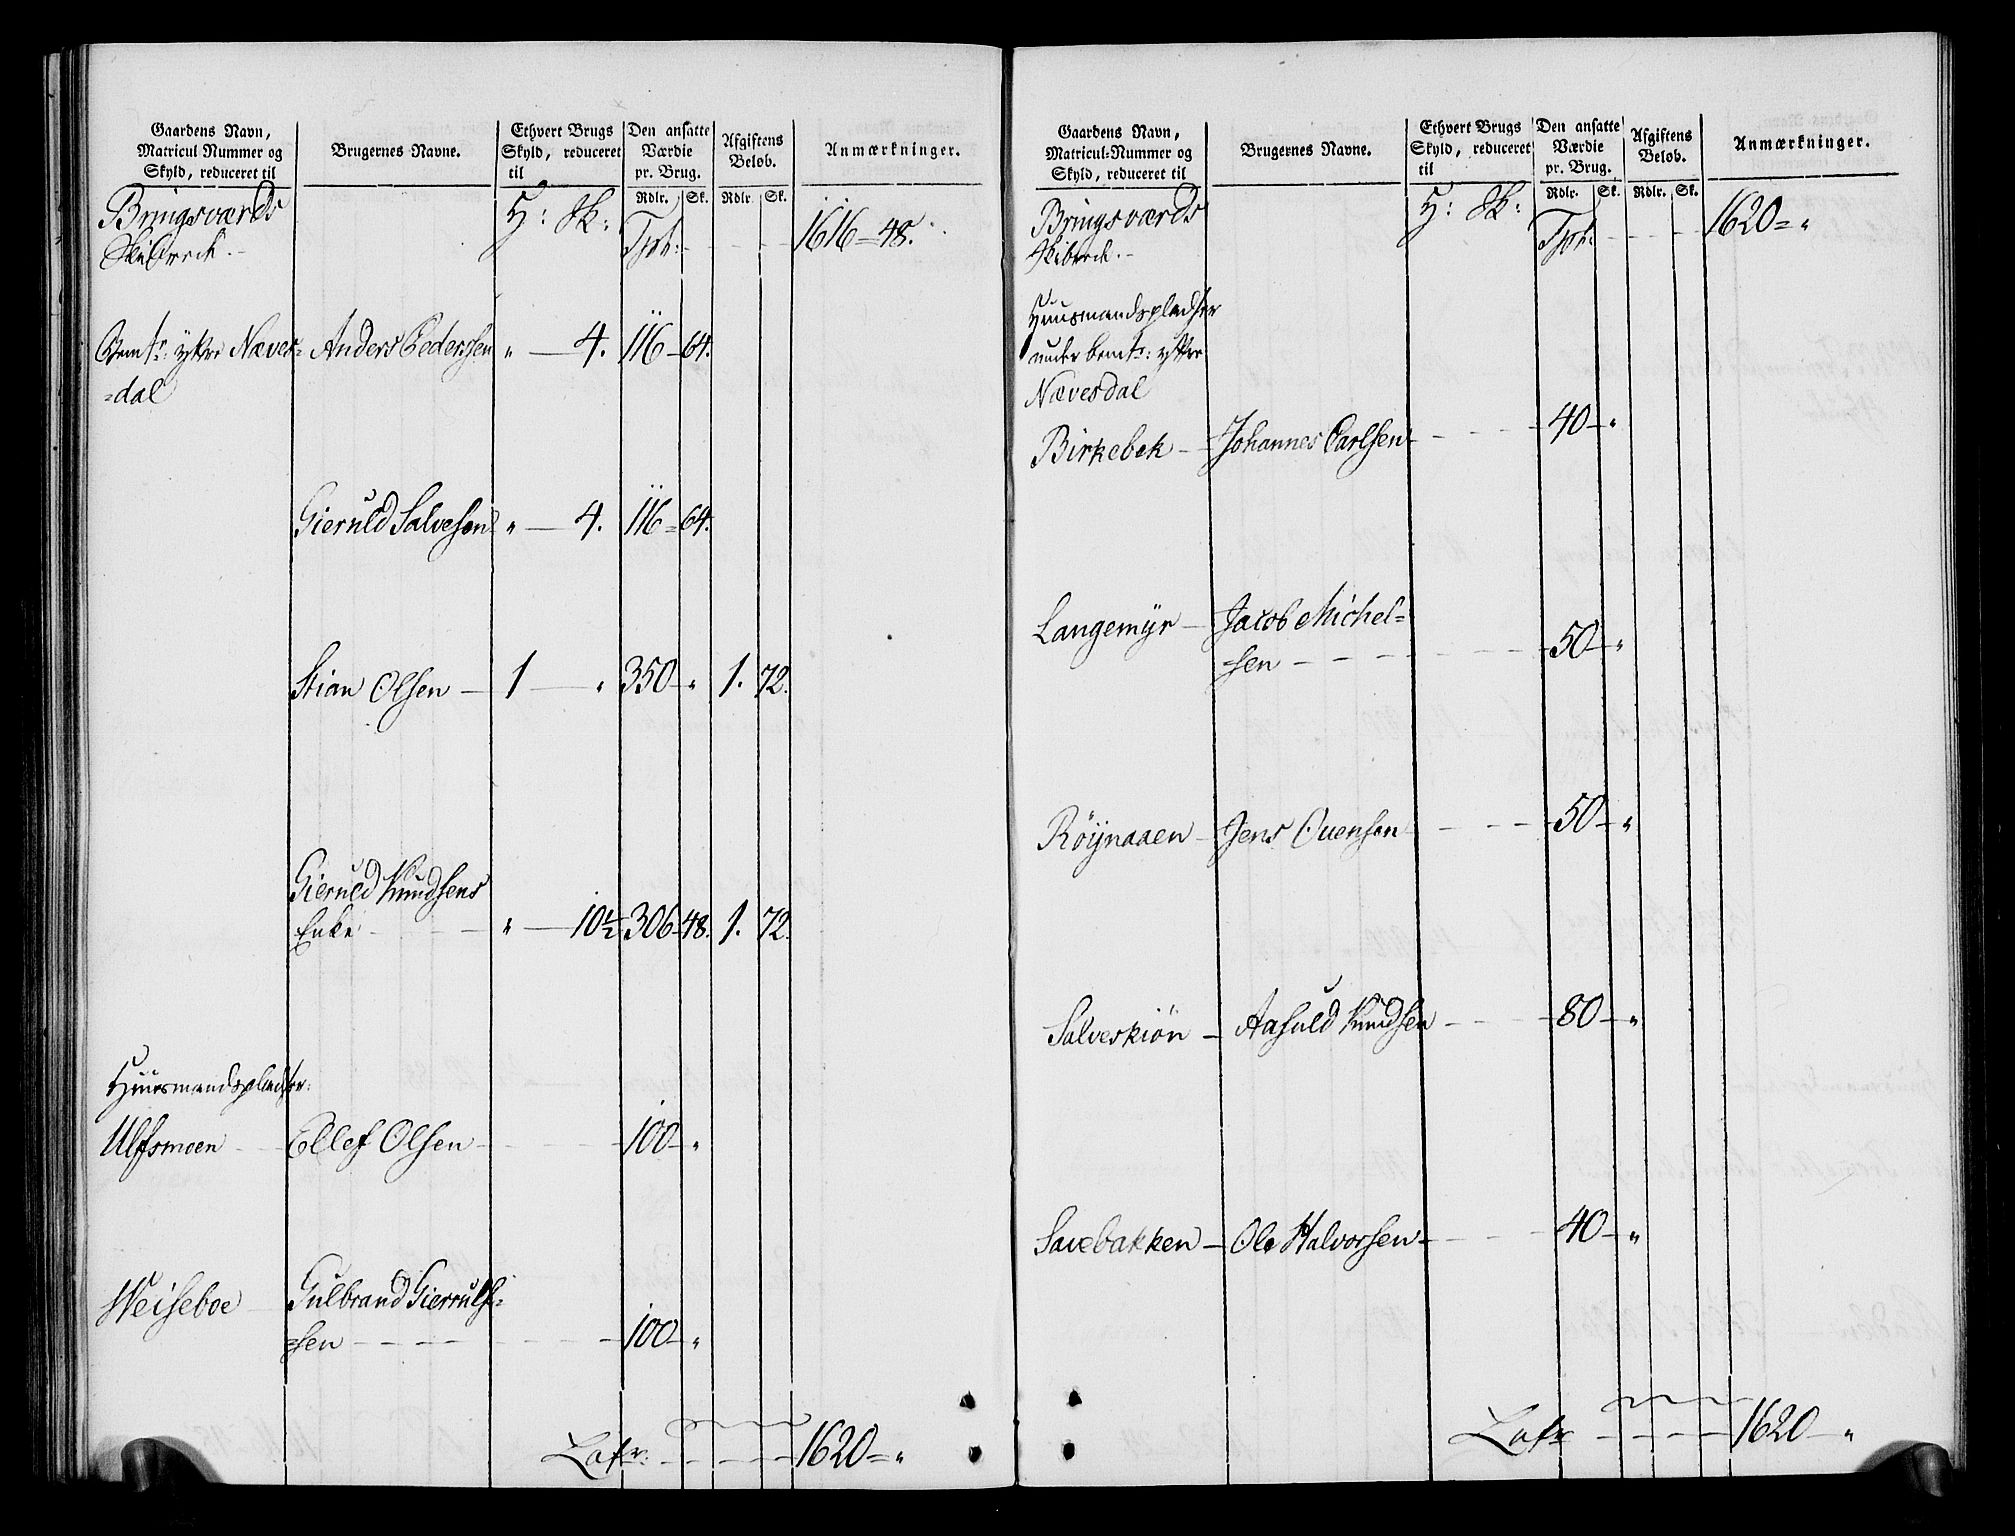 Gaardens Navn,
Matricul Nummer og
Skyld, reduceret til
Brugernes Navne.
Ethvert Brugs
Skyld, reduceret
til
Den ansatte
Værdie
pr. Brug.
Rdlr. Sk.
Afgiftens
Beløb.
Rdlr. Sk.
Anmærkninger.
Bringsværds H: Sk: Tprt: 1616 - 48.
Skibrede.
Bemte: yttre Næves= Anders Pedersen " - 4. 116 - 64.
=dal
Gieruld Salvesen " - 4. 116 = 64.
Stian Olsen - 1 - " 350 - " 1. 72.
Gieruld Knudsens
Enke " - 10½ 306 - 48. 1. 72.
Huusmandspladser:
Ulfsmoen Ellef Olsen 100 - "
Weiseboe Gulbrand Gierruls=
=sen 100 - "
Latr: 1620 = "
Gaardens Navn,
Matricul-Nummer og
Skyld, reduceret til
Brugernes Navne.
Ethvert Brugs
Skyld, reduceret
til
Den ansatte
Værdie
pr. Brug.
Rdlr. Sk.
Afgiftens
Beløb.
Rdlr. Sk.
Anmærkninger.
Bringsværds H: Sk: Tprt: 1620 = "
Skibrede.
Huusmandspladser
under bemte: yttre
Nævesdal
Birkebek - Johannes Carlsen 40 - "
Langemyr - Jacob Michel=
sen 50 - "
Röijnaaen - Jens Ouensen 50 - "
Salveskiön - Aasuld Knudsen 80 - "
Sauebakken - Ole Halvorsen 40 - "
Latr 1620 - "